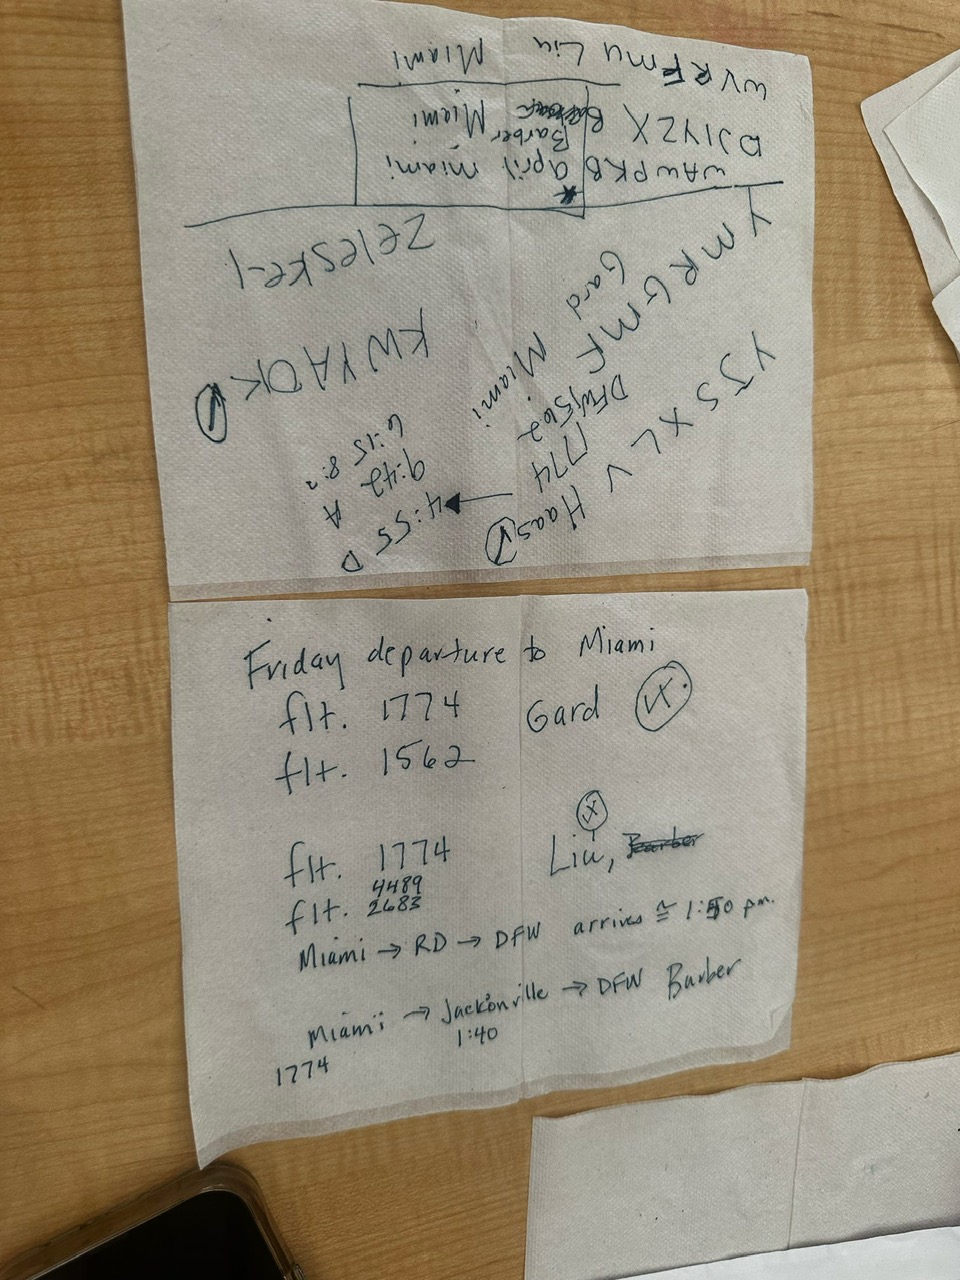 WVRFMU Liu Miami
DJIYZX Barber Miami
WAWPKB April Miami
YMRGMF Gard
Miami
DFW 1562
1774
YJSXLV
Haas
4:55 D
9:42 A
6:15
KWYAOK
Zeleskey
Friday departure to Miami
flt. 1774 Gard
flt. 1562
flt. 1774 Liu, Barber
4489
flt. 2683
Miami → RD → DFW arrives ≅ 1:50 pm.
Miami → Jacksonville → DFW Barber
1:40
1774